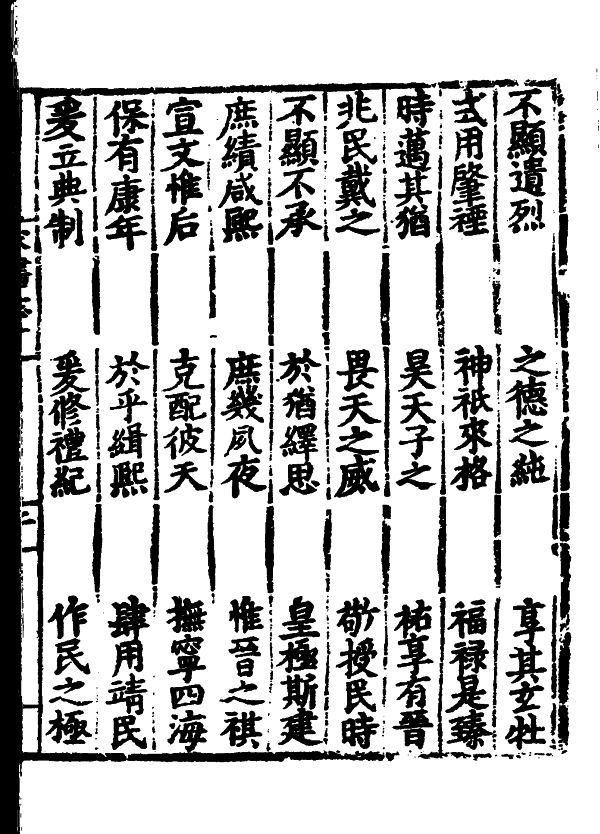 不顯遺烈 之德之純 享其玄牡
式用肇禋 神祇來格 福祿是臻
時邁其猶 昊天子之 祐享有晉
兆民戴之 畏天之威 敬授民時
不顯不承 於猶繹思 皇極斯建
庶績咸熙 庶幾夙夜 惟晉之祺
宣文惟后 克配彼天 撫寧四海
保有康年 於乎緝熙 肆用靖民
爰立典制 爰修禮紀 作民之極